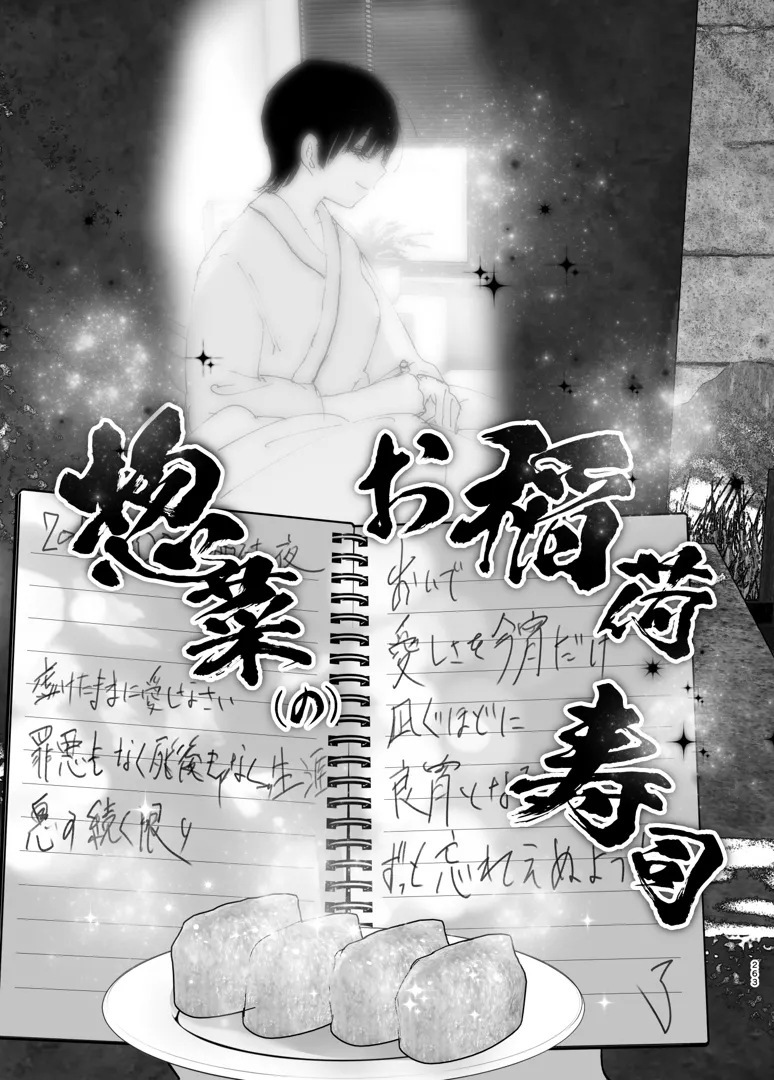 お稲荷寿司
惣菜
(の)
おいで
愛しさを今宵だけ
凪ぐほどに
良宵となる
ずっと忘れえぬよう
虚けたままに愛しなさい
罪悪もなく死後もなく生涯
息の続く限り
了
263